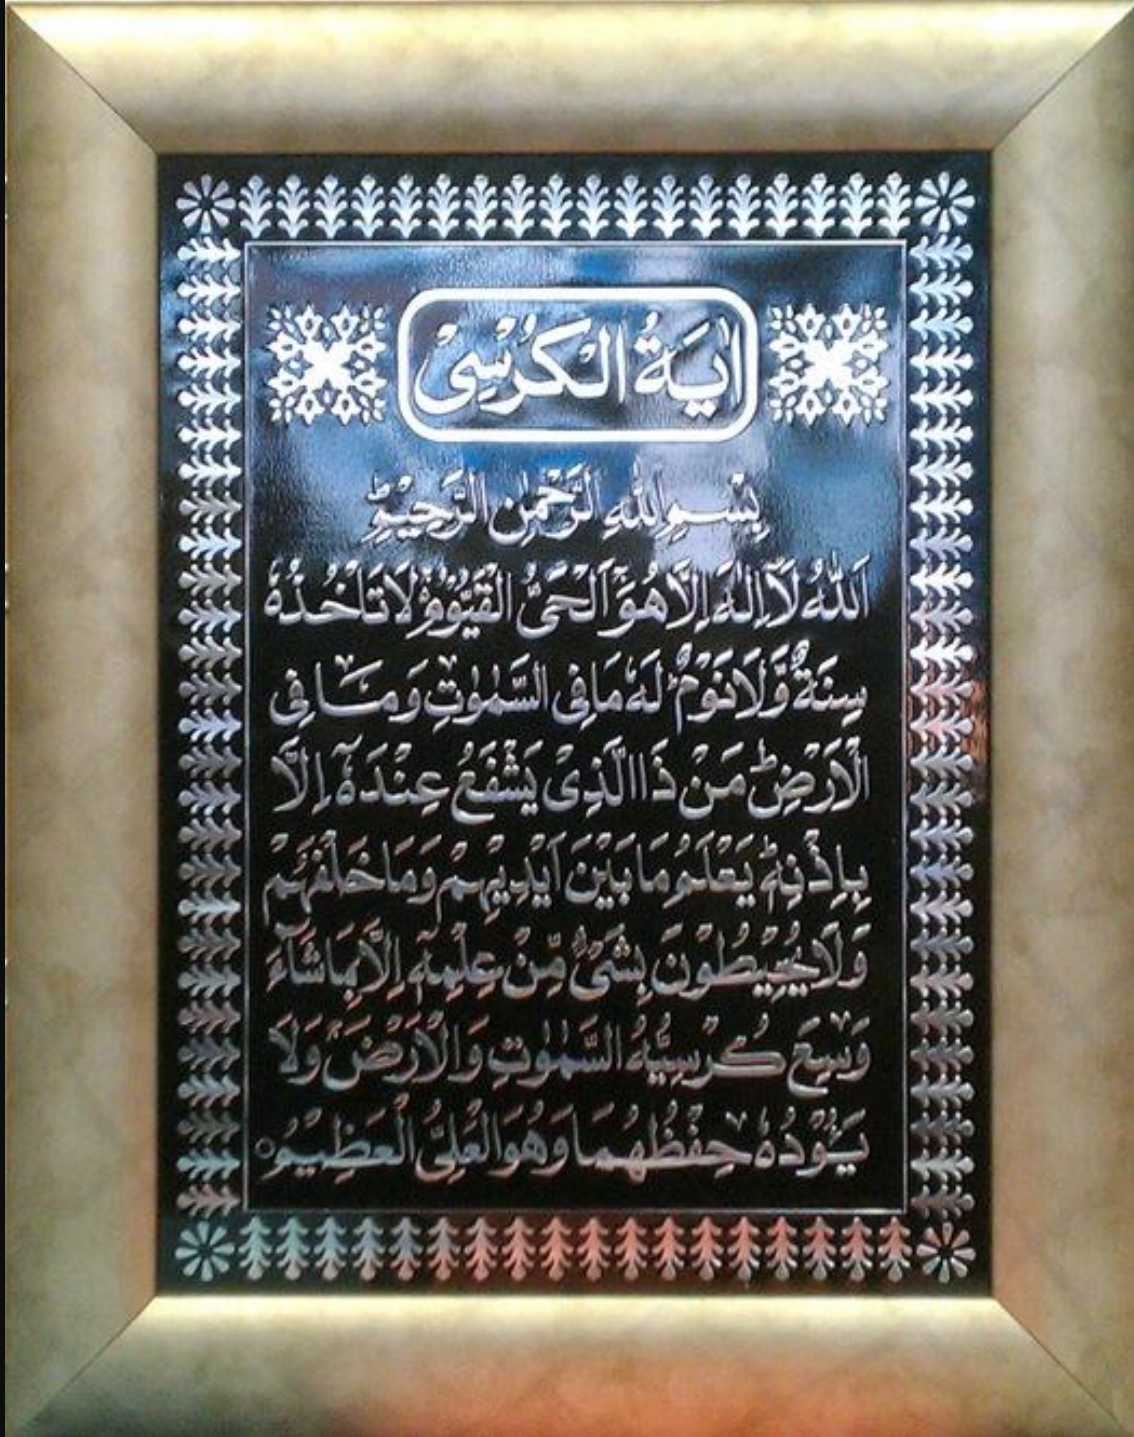 اٰيَةُ الْكُرْسِىْ
بِسْمِ اللّٰهِ الرَّحْمٰنِ الرَّحِيْمِ ؕ
اَللّٰهُ لَآ اِلٰهَ اِلَّا هُوَۚ اَلْحَىُّ الْقَيُّوْمُ ۚ لَا تَاْخُذُهٗ
سِنَةٌ وَّلَا نَوْمٌ ؕ لَهٗ مَا فِى السَّمٰوٰتِ وَمَا فِى
الْاَرْضِ ؕ مَنْ ذَا الَّذِىْ يَشْفَعُ عِنْدَهٗۤ اِلَّا
بِاِذْنِهٖ ؕ يَعْلَمُ مَا بَيْنَ اَيْدِيْهِمْ وَمَا خَلْفَهُمْ
وَلَا يُحِيْطُوْنَ بِشَىْءٍ مِّنْ عِلْمِهٖۤ اِلَّا بِمَا شَآءَ
وَسِعَ كُرْسِيُّهُ السَّمٰوٰتِ وَالْاَرْضَ ۚ وَلَا
يَـُٔوْدُهٗ حِفْظُهُمَا وَهُوَ الْعَلِىُّ الْعَظِيْمُ ○